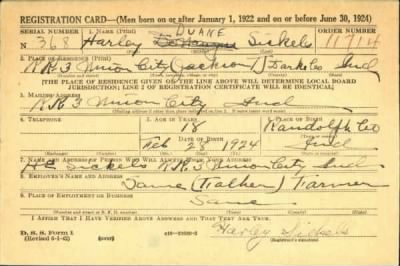 REGISTRATION CARD—(Men born on or after January 1, 1922 and on or before June 30, 1924)
SERIAL NUMBER 1. NAME (Print) ORDER NUMBER
DUANE
N 368 Harley Sickels 11714
(First) (Middle) (Last)
2. PLACE OF RESIDENCE (Print)
R.R. 3 Union City (Jackson) Ind
[THE PLACE OF RESIDENCE GIVEN ON THE LINE ABOVE WILL DETERMINE LOCAL BOARD
JURISDICTION; LINE 2 OF REGISTRATION CERTIFICATE WILL BE IDENTICAL]
3. MAILING ADDRESS
R.R. 3 Union City Ind
[Mailing address if other than place indicated on line 2. If same insert word same]
4. TELEPHONE 5. AGE IN YEARS 6. PLACE OF BIRTH
18 Randolph Co
DATE OF BIRTH
Feb 28 1924 Ind
7. NAME AND ADDRESS OF PERSON WHO WILL ALWAYS KNOW YOUR ADDRESS
Sickels R.R. 3 Union City Ind
8. EMPLOYER'S NAME AND ADDRESS
Same (Father) Farmer
9. PLACE OF EMPLOYMENT OR BUSINESS
Same
I AFFIRM THAT I HAVE VERIFIED ABOVE ANSWERS AND THAT THEY ARE TRUE.
D. S. S. Form 1
Harley Sickels
(Registrant's signature)